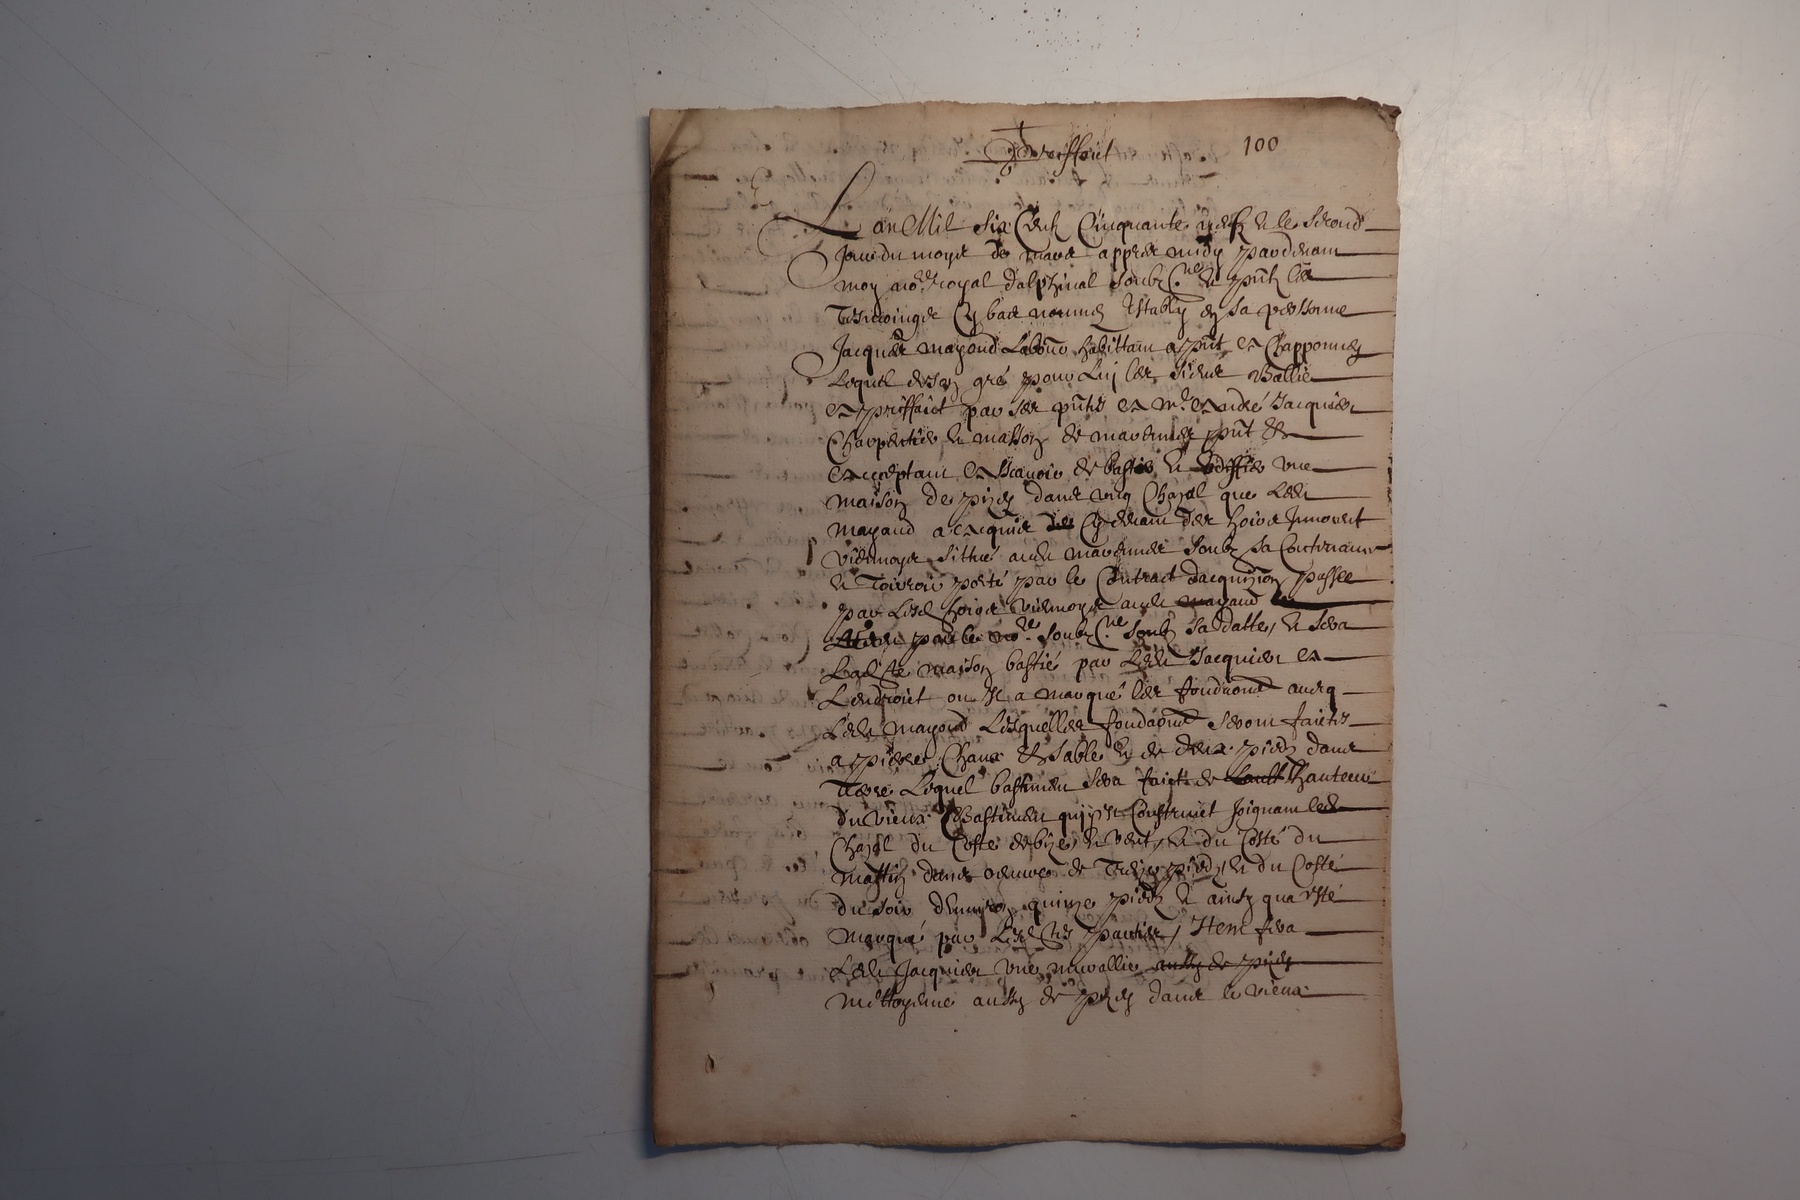 Prixffaict
100
L an Mil six Cents Cinquante & le second
Jour du moys de mars appres midy pardevant
moy no.re royal dalphinal soubz.ne & pntz les
Tesmoingz Cy bas nommez Estably en sa personne
Jacques mayoud habittant a pnt a Chapponnay
Lequel de son gré pour Luy les siens Ballie
a priffaict par ces pntes a M.e André Jacquier
Charpentier & masson de mavernier pnt &
acceptant a scavoir de bastir & ediffier une
maison de pizey dans ung Chazal que Ledt
mayoud a acquis Cy devant des hoirs
Vidmoyne sittué audt soubz sa Contenance
& porté par le Contract dacquizion passee
par Lesd hoirs audt mayoud
no.re soubz.ne soubz sa datte, & sera
Ladicte maison bastie par Ledt Jacquier a
Lendroict ou Il a marqué les fondaons avecq
Ledt mayoud Lesquelles fondaons seront faictes
a pierre, Chaux & sable & de deux piedz dans
Terre Lequel bastiment sera faict de hauteur
du vieux bastiment quy est Construict Joignant led
Chazal du Costé de bize, & vent, & du Costé du
mattin de Treize piedz, & du Costé
du soir denviron quinze piedz & ainsy qua esté
marqué par Lesdtes parties, Item fera
Ledt Jacquier une muvallie aussy de pizey
mittoyenne aussy de pizey dans le vieux